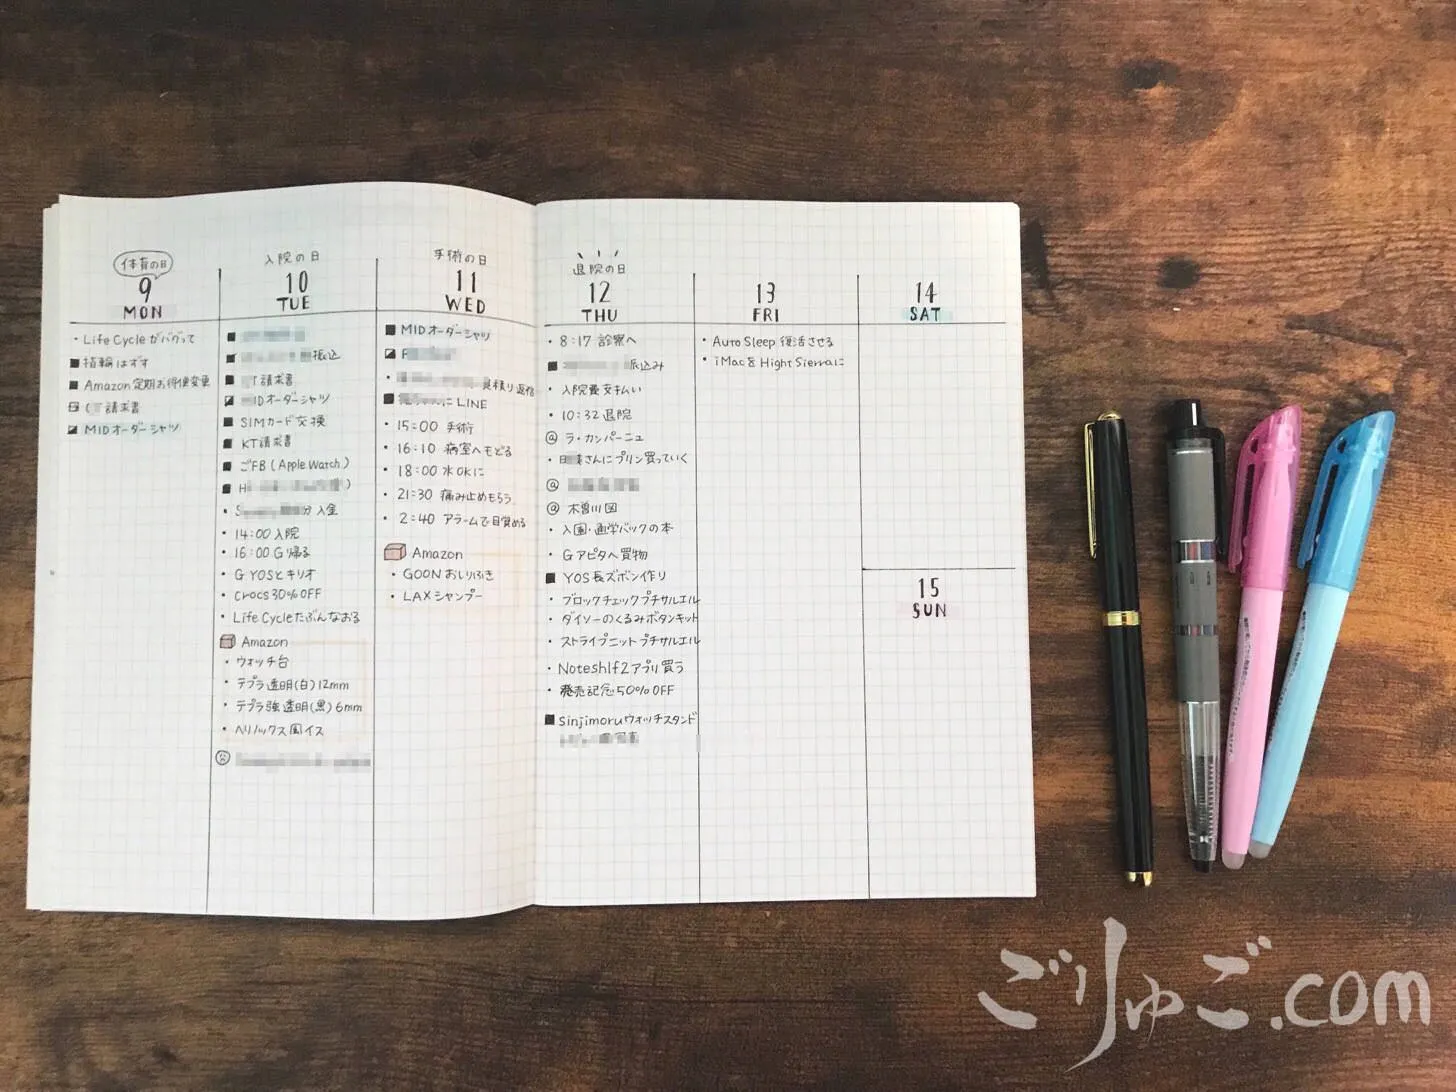 体育の日
9
MON
・Life Cycleがバグって
■指輪はずす
■Amazon定期お得便変更
請求書
MIDオーダーシャツ
入院の日
10
TUE
振込
T請求書
MIDオーダーシャツ
■SIMカード交換
■KT請求書
■ごFB(Apple Watch)
■H
入金
・14:00入院
・16:00 G帰る
・G YOSとキリオ
・crocs30%OFF
・Life Cycleたぶんなおる
Amazon
・ウォッチ台
・テプラ透明(白)12mm
・テプラ強透明(黒)6mm
・ヘリノックス風イス
手術の日
11
WED
■MIDオーダーシャツ
見積り返信
にLINE
・15:00 手術
・16:10 病室へもどる
・18:00 水OKに
・21:30 痛み止めもらう
・2:40 アラームで目覚める
Amazon
・GOONおしりふき
・LAXシャンプー
退院の日
12
THU
・8:17 診察へ
振込み
・入院費支払い
・10:32 退院
@ ラ・カンパーニュ
さんにプリン買っていく
@
@ 木曽川図
・入園・通学バックの本
・Gアピタへ買物
■YOS長ズボン作り
・ブロックチェックプチサルエル
・ダイソーのくるみボタンキット
・ストライプニットプチサルエル
・Noteshlf2アプリ買う
・発売記念50%OFF
■Sinjimoruウォッチスタンド
13
FRI
・Auto Sleep 復活させる
・iMacをHight Sierraに
14
SAT
15
SUN
ごりゅご.com